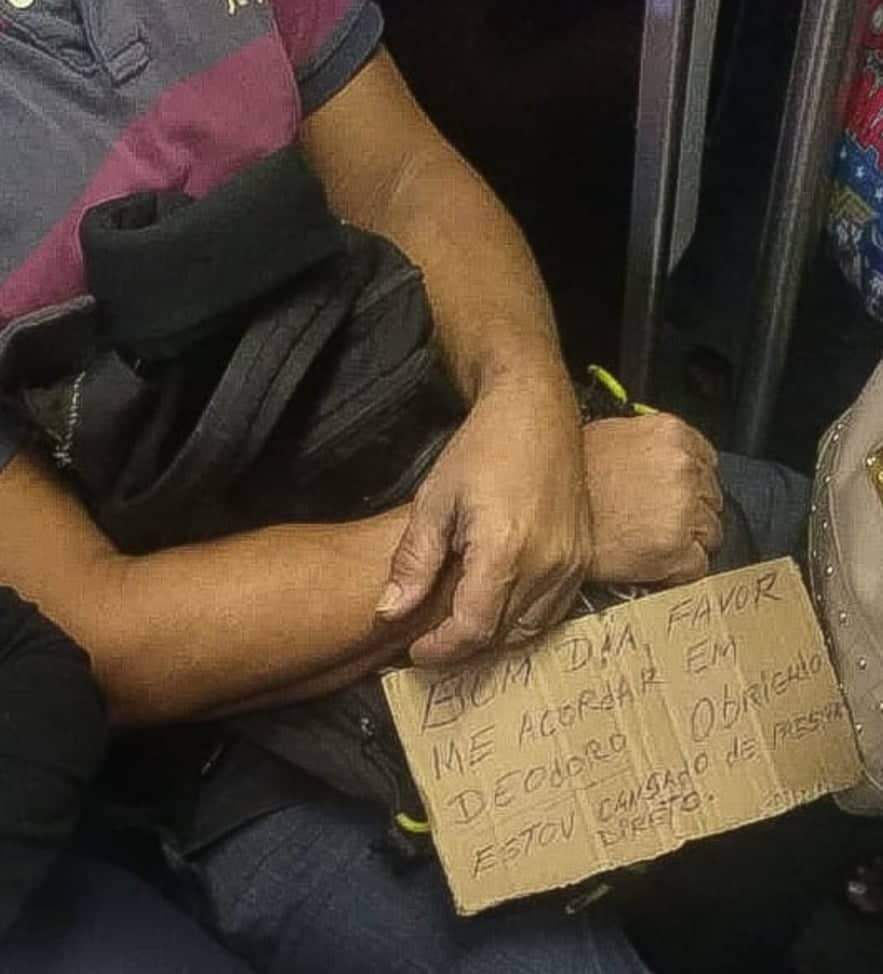 BOM DIA, FAVOR
ME ACORDAR EM
DEODORO OBRIGADO
ESTOU CANSADO DE PASSAR
DIRETO.